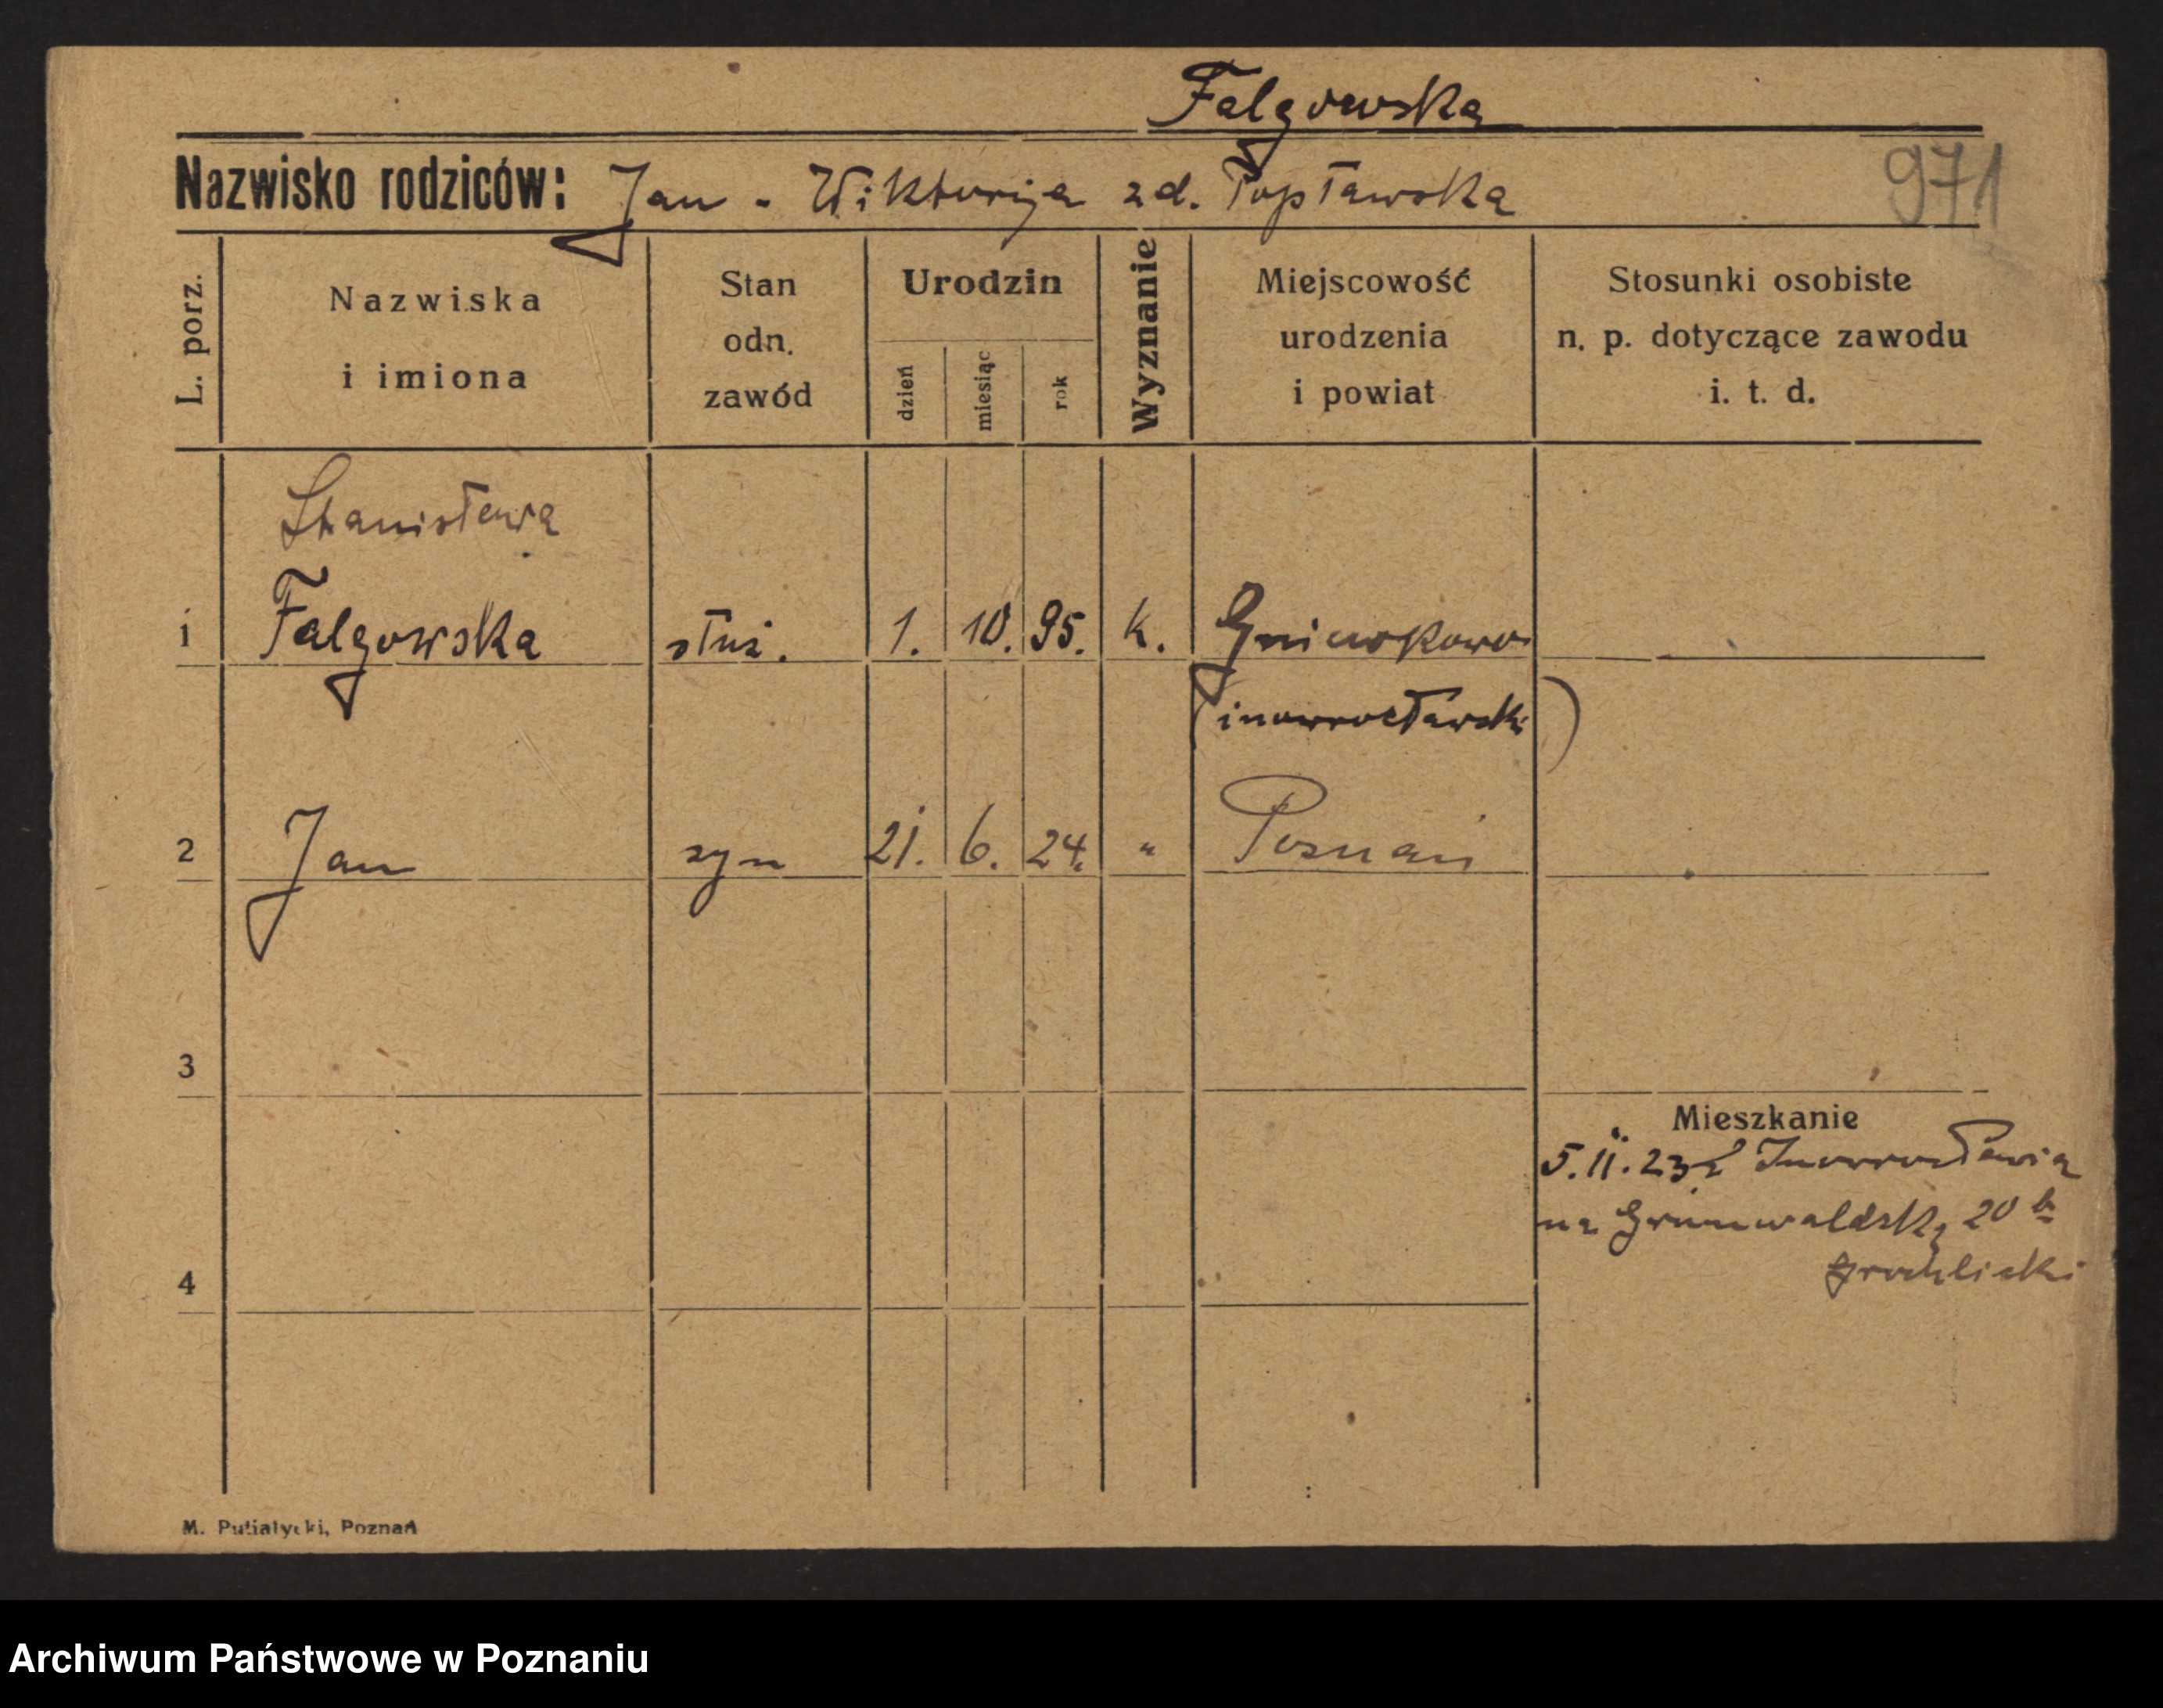 Falgowska
Nazwisko rodziców: Jan - Wiktorija zd. Topławska
971
L. porz.
Nazwiska
i imiona
Stan
odn.
zawód
Urodzin
dzień
miesiąc
rok
Wyznanie
Miejscowość
urodzenia
i powiat
Stosunki osobiste
n. p. dotyczące zawodu
i. t. d.
Stanisława
1 Falgowska służ. 1. 10. 95. k. Gniewkowo
(inowrocławski)
2 Jan syn 21. 6. 24. " Poznań
3
Mieszkanie
5. 11. 23 z Inowrocławia
na Grunwaldsk, 20 b
4
M. Putiatycki, Poznań
Archiwum Państwowe w Poznaniu